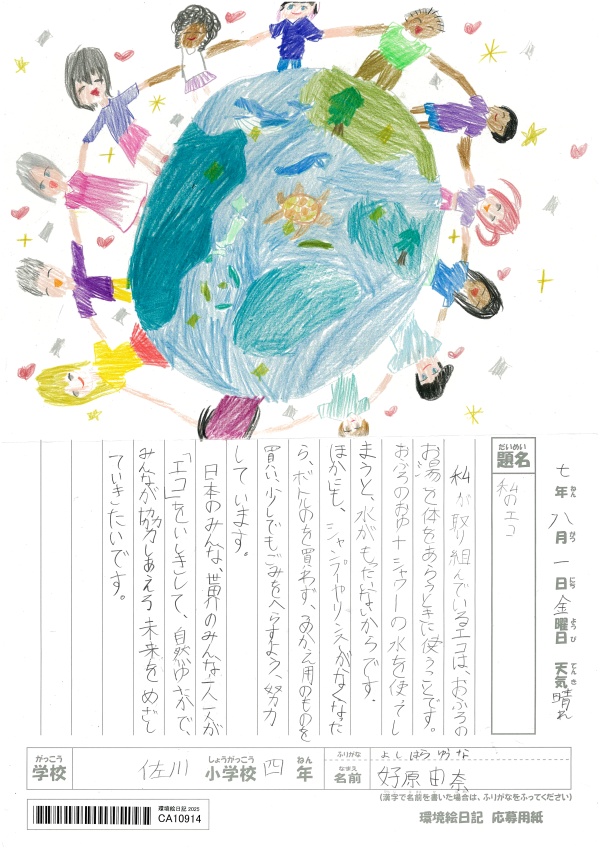 七年八月一日金曜日 天気晴れ
ねん がつ にち ようび てんき
だいめい
題名
私のエコ
私が取り組んでいるエコは、おふろの
お湯を体をあらうときに使うことです。
おふろのおゆ+シャワーの水を使ってし
まうと、水がもったいないからです。
ほかにも、シャンプーやリンスがなくなった
ら、ボトルのを買わず、つめかえ用のものを
買い、少しでもごみをへらすよう、努力
しています。
日本のみんな、世界のみんな一人一人が
「エコ」をいしきして、自然ゆたかで、
みんなが協力しあえる未来をめざし
ていきたいです。
がっこう
学校
佐川
しょうがっこう
小学校
四
ねん
年
ふりがな
よしはらゆうな
なまえ
名前
好原由奈
(漢字で名前を書いた場合は、ふりがなをふってください)
環境絵日記 2025
CA10914
環境絵日記 応募用紙